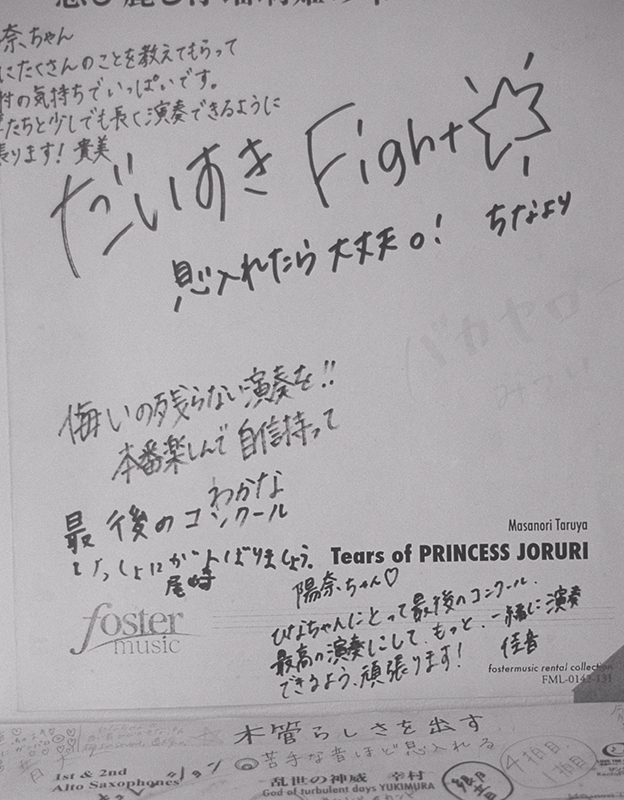 奈ちゃん
にたくさんのことを教えてもらって
の気持ちでいっぱいです。
たちと少しでも長く演奏できるように
張ります! 貴美
だいすき Fight☆
息入れたら大丈夫。! ちなより
バカヤロー
みつい
悔いの残らない演奏を!!
本番楽しんで自信持って
わかな
最後のコンクール
いっしょにがんばりましょう。
尾崎
Masanori Taruya
Tears of PRINCESS JORURI
陽奈ちゃん♡
ひなちゃんにとって最後のコンクール.
最高の演奏にして、もっと、一緒に演奏
できるよう、頑張ります! 佳音
foster
music
fostermusic rental collection
FML-0142-131
木管らしさを出す
苦手な音ほど息入れる
4拍目
1st & 2nd
Alto Saxophones
乱世の神威 幸村
God of turbulent days YUKIMURA